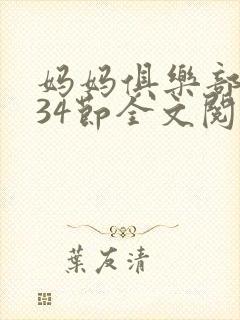 妈妈俱樂部
34节全文閱
葉友清